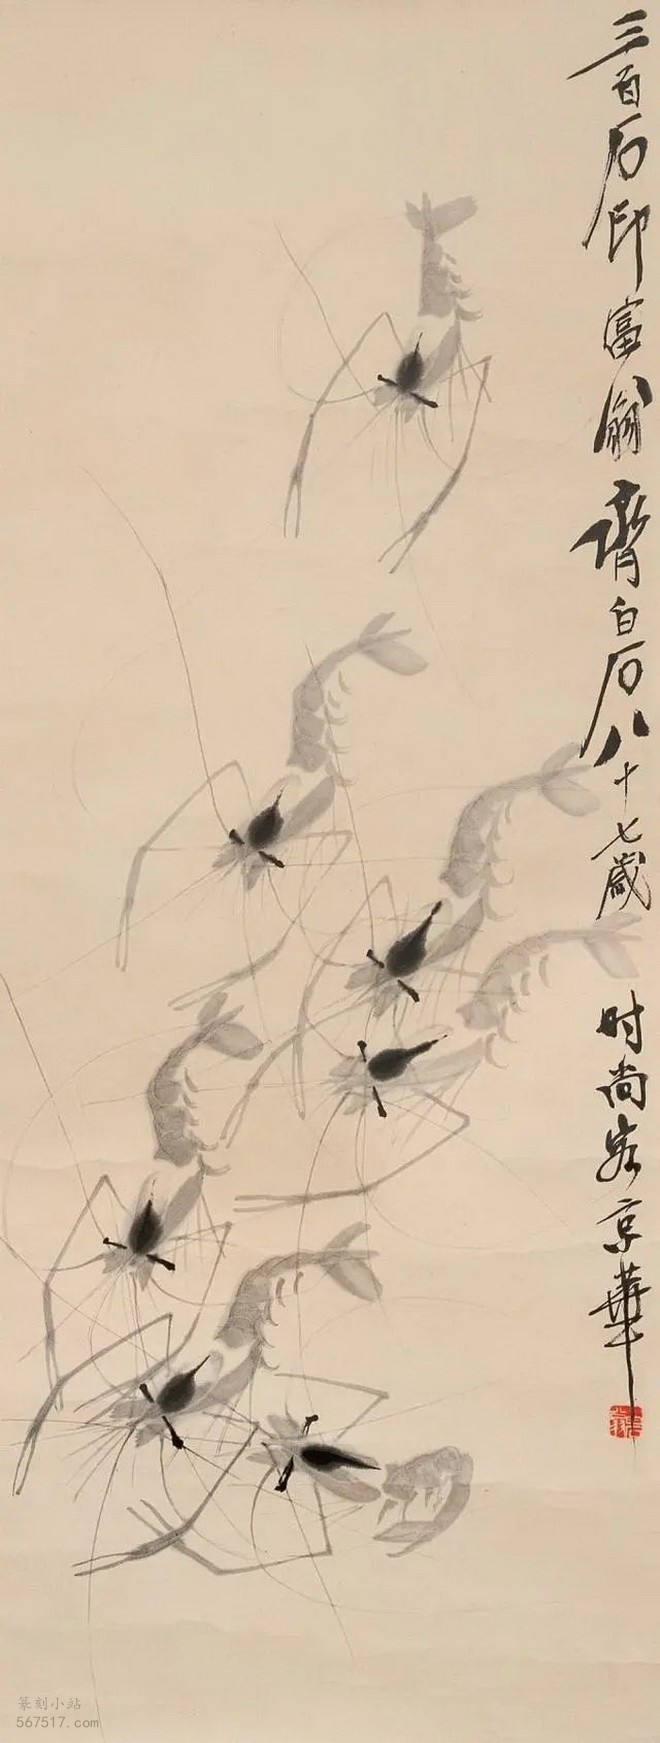 三百石印富翁齊白石八十七歲时尚客京華
篆刻小站
567517.com